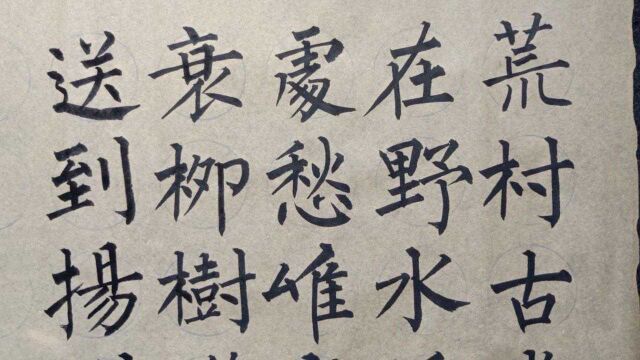 荒村古
在野水
處愁崔
衰柳樹
送到揚